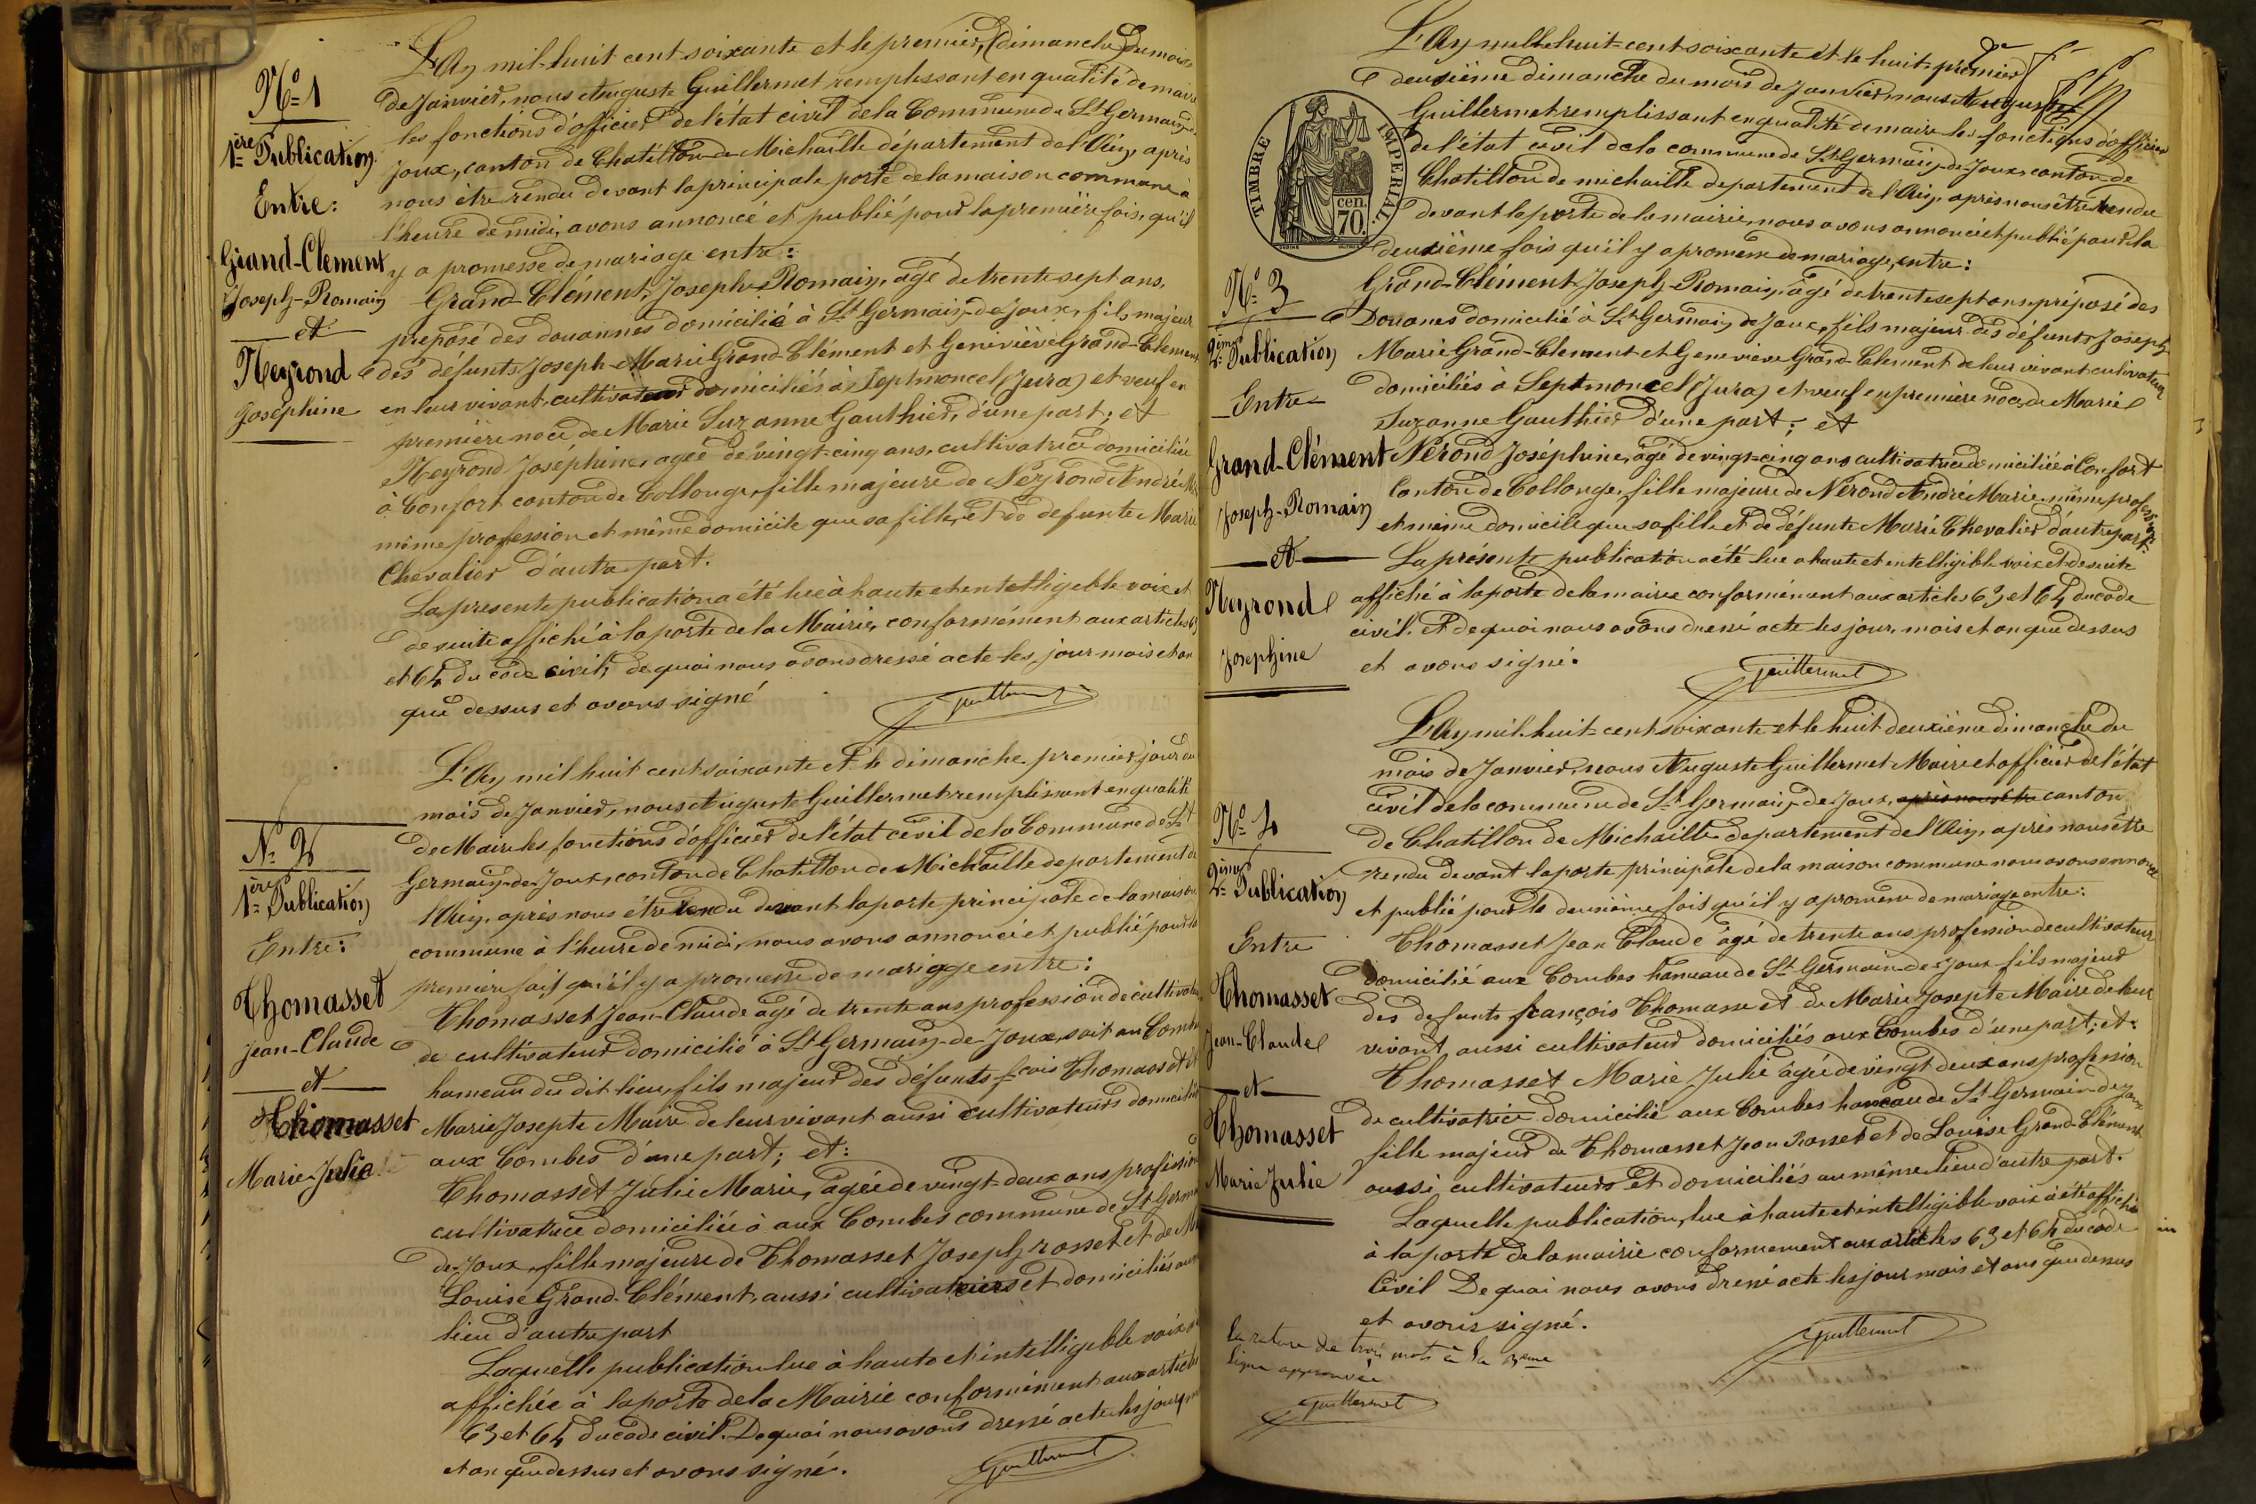 N° 1
1ère Publication
Entre:
Grand-Clement
Joseph-Romain
et
Neyrond
Joséphine
L'An mil-huit cent soixante et le premier, (dimanche) du mois
de Janvier, nous Auguste Guillermet remplissant en qualité de maire
les fonctions d'officier de l'état civil de la Commune de St Germain-de
joux, canton de Chatillon de Michaille département de l'Ain, après
nous être rendu devant la principale porte de la maison commune à
l'heure de midi, avons annoncé et publié pour la première fois, qu'il
y a promesse de mariage entre:
Grand-Clément, Joseph-Romain, agé de trente-sept ans,
préposé des douannes domicilié à St Germain-de-joux, fils majeur
des défunts Joseph-Marie Grand-Clément et Geneviève Grand-Clement
en leur vivant, cultivateurs domiciliés à Septmoncel (Jura) et veuf en
première noce de Marie Suzanne Gauthier, d'une part; et
Neyrond Joséphine, agée de vingt-cinq ans, cultivatrice domiciliée
à Confort canton de Collonge, fille majeure de Neyrond André
même profession et même domicile que sa fille, et de defunte Marie
Chevalier d'autre part.
La présente publication a été lue à haute et entelligeble voix et
de suite affiché à la porte de la Mairie, conformément aux articles 63
et 64 du code civil, de quoi nous avons dressé acte les jour mois et an
que dessus et avons signé
Guillermet
N° 2
1ère Publication
Entre:
Thomasset
Jean-Claude
et
Thomasset
Marie Julie
L'An mil huit cent soixante et le dimanche premier jour du
mois de Janvier, nous Auguste Guillermet remplissant en qualité
de Maire les fonctions d'officier de l'état civil de la Commune de St
Germain-de-Joux, canton de Chatillon de Michaille departement de
l'Ain, après nous être rendu devant la porte principale de la maison
commune à l'heure de midi, nous avons annoncé et publié pour la
première fois qu'il y a promesse de mariage entre:
Thomasset Jean-Claude agé de trente ans profession de cultivateur
de cultivateur domicilié à St Germain-de-Joux, soit au Combes
hameau du dit lieu, fils majeur des défunts fçois Thomasset et
Marie Josepte Maire de leur vivant aussi cultivateurs domiciliés
aux Combes d'une part; et:
Thomasset Julie Marie, agée de vingt-deux ans profession
cultivatrice domiciliée à aux Combes commune de St Germain
de-Joux, fille majeure de Thomasset Joseph rosset et de
Louise Grand-Clément, aussi cultivateurs et domiciliés au
lieu d'autre part
Laquelle publication lue à haute et intelligible voix
affichée à la porte de la Mairie conformément aux articles
63 et 64 du code civil. De quoi nous avons dressé acte les jour
et an que dessus et avons signé.
Guillermet
TIMBRE IMPERIAL
cen.
70.
N° 3
2ème Publication
Entre
Grand-Clément
Joseph-Romain
et
Neyrond
Josephine
L'An mil huit-cent soixante et le huit premier
deuxième dimanche du mois de Janvier, nous Auguste
Guillermet remplissant en qualité de maire les fonctions d'officier
de l'état civil de la commune de St Germain-de-Joux, canton de
Chatillon de michaille departement de l'Ain, après nous être rendu
devant la porte de la mairie, nous avons annoncé et publié pour la
deuxième fois qu'il y a promesse de mariage, entre:
Grand-Clément Joseph-Romain, âgé de trente sept ans préposé des
Douanes domicilié à St Germain de Joux, fils majeur des défunts Joseph
Marie Grand-Clement et Genevieve Grand-Clement de leur vivant cultivateurs
domiciliés à Septmoncel (Jura) et veuf en première noce, de Marie
Suzanne Gauthier d'une part; et
Nérond Joséphine, âgé de vingt-cinq ans cultivatrice domiciliée à Confort
Canton de Collonge, fille majeure de Nérond André Marie, même profession
et même domicile que sa fille et de défunte Marie Chevalier d'autre part.
La présente publication a été lue a haute et entelligible voix et de suite
affiché à la porte de la mairie conformément aux articles 63 et 64 du code
civil. Et de quoi nous avons dressé acte les jour, mois et an que dessus
et avons signé.
Guillermet
N° 4
2ème Publication
Entre
Thomasset
Jean-Claude
et
Thomasset
Marie Julie
L'An mil-huit-cent soixante et le huit deuxième dimanche du
mois de Janvier, nous Auguste Guillermet Maire et officier de l'état
civil de la commune de St Germain-de-Joux, après nous être canton
de Chatillon de Michaille departement de l'Ain, après nous être
rendu devant la porte principale de la maison commune nous avons annoncé
et publié pour la deuxième fois qu'il y a promesse de mariage entre:
Thomasset Jean Claude âgé de trente ans profession de cultivateur
Domicilié aux Combes hameau de St Germain-de-Joux fils majeur
des defunts françois Thomasset et de Marie Josepte Maire de leur
vivant aussi cultivateur domiciliés aux Combes d'une part; et:
Thomasset Marie Julie âgée de vingt deux ans profession
de cultivatrice domicilié aux Combes hameau de St Germain de Joux
fille majeur de Thomasset Jean Rosset et de Louise Grand-Clément
aussi cultivateurs et domiciliés au même lieu d'autre part.
Laquelle publication, lue à haute et intelligible voix a été affichée
à la porte de la mairie conformement aux articles 63 et 64 du code
Civil De quoi nous avons dressé acte les jour mois et ans que dessus
et avons signé.
Guillermet
la rature de trois mots à la 3eme
ligne approuvée
Guillermet